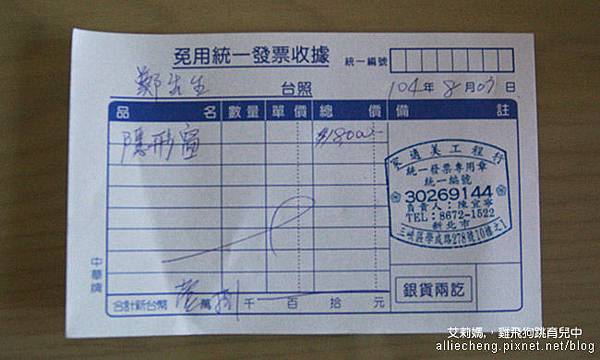 免用統一發票收據
統一編號
鄭先生 台照 104年8月07日
品名 數量 單價 總價 備註
隱形窗
家適美工程行
統一發票專用章
統一編號
30269144
負責人：陳宜寧
TEL：8672-1522
新北市
三峽區學成路278號10樓之1
中華牌
合計新台幣 萬 捌 仟 百 拾 元
銀貨兩訖
艾莉媽，雞飛狗跳育兒中
alliecheng.pixnet.net/blog